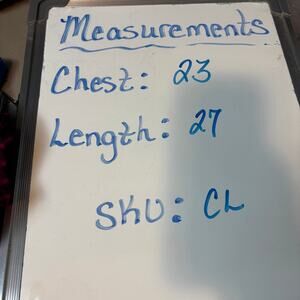 Measurements
Chest: 23
Length: 27
SKU: CL